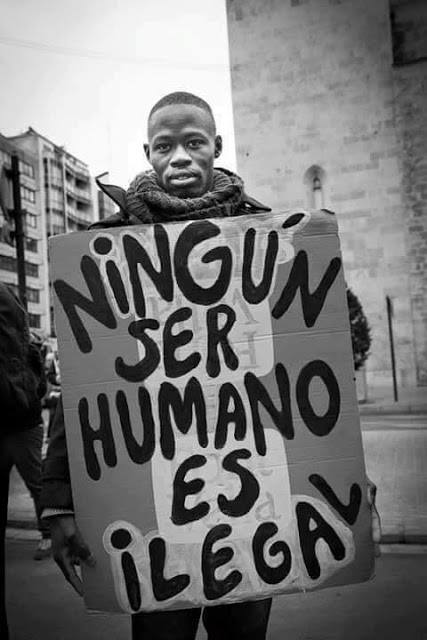 NINGÚN
SER
HUMANO
ES
iLEGAL